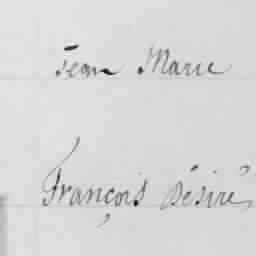 Jean Marie
François Désiré